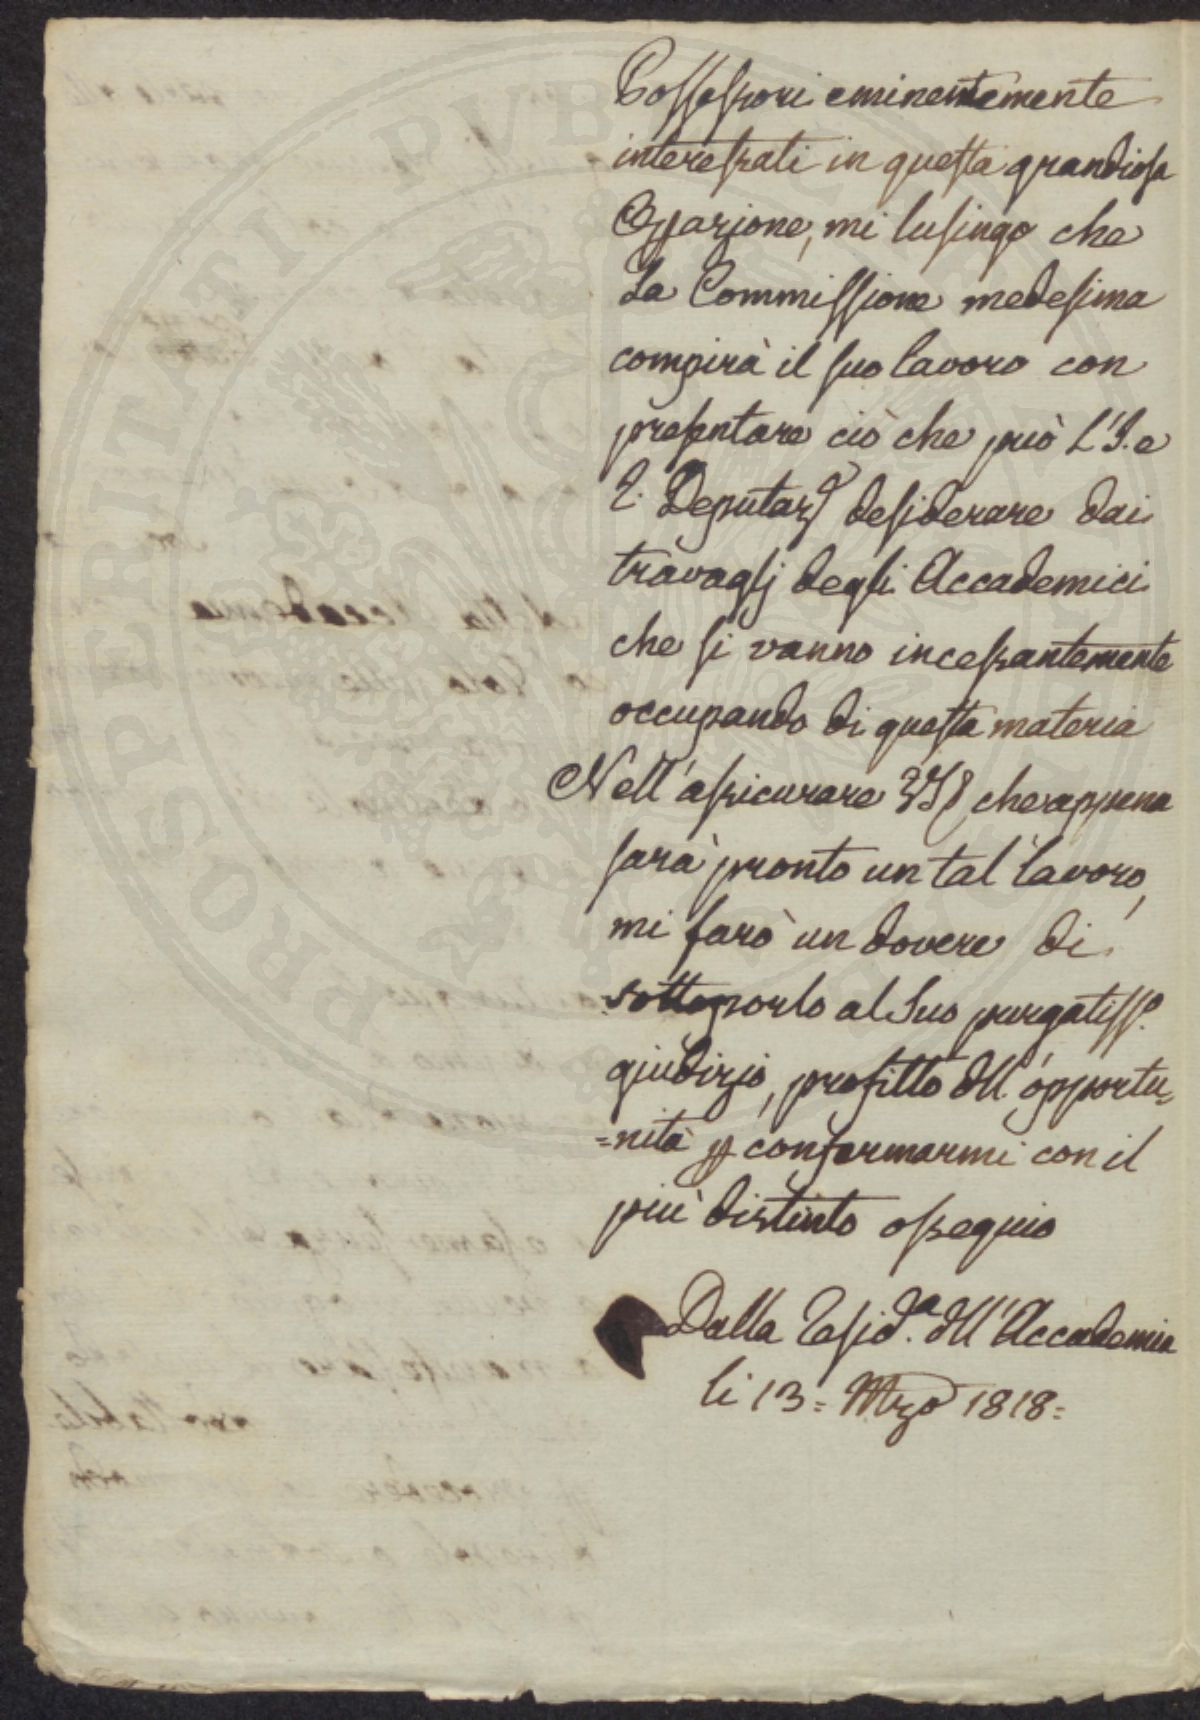 Possessori eminentemente
interessati in questa grandiosa
Opparzione, mi lusingo che
La Commissione medesima
compirà il suo lavoro con
presentare ciò che può L'I. e
R. Deputaz.e desiderare dai
travaglj degli Accademici
che si vanno incessantemente
occupando di questa materia
Nell'assicurare che appena
sarà pronto un tal lavoro,
mi farò un dovere di
sottoporlo al Suo purgatiss.o
giudizio, profitto dell'opportu=
=nità p confermarmi con il
più distinto ossequio
Dalla Resid.a dll'Accademia
li 13= Mrzo 1818=
PROSPERITATI PUBLICAE